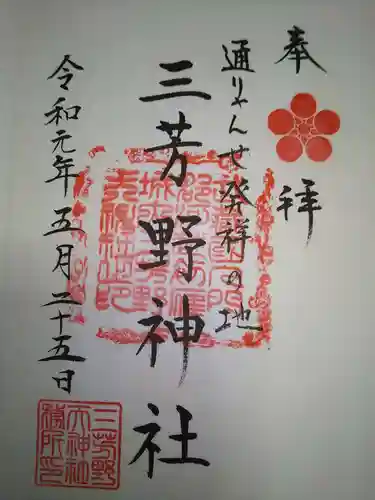 奉拝
通りゃんせ発祥の地
三芳野神社
令和元年五月二十五日
三芳野
天神社
務所印